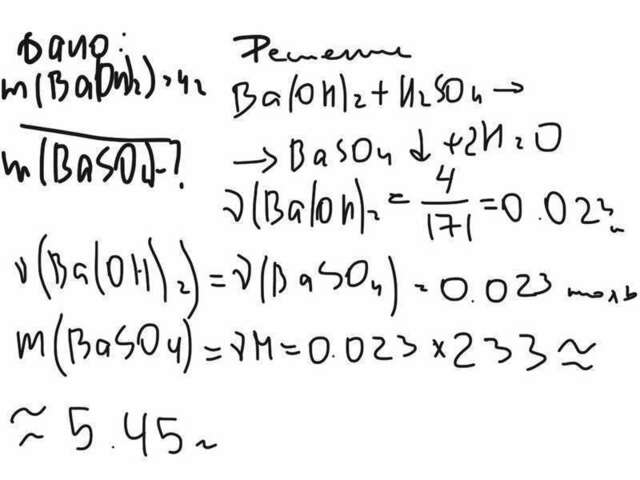 Дано:
m(Ba(OH)2) = 4г
m(BaSO4) - ?
Решение
Ba(OH)2 + H2SO4 →
→ BaSO4 ↓ + 2H2O
ν(Ba(OH)2 = 4/171 = 0.023м
ν(Ba(OH)2) = ν(BaSO4) = 0.023 моль
m(BaSO4) = νM = 0.023 × 233 ≈
≈ 5.45г